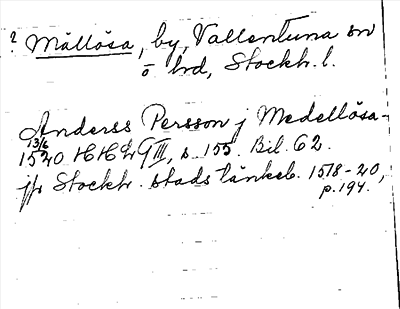 ? Mällösa, by, Vallentuna sn
o hd, Stockh. l.
Anderss Persson j Medellösa -
13/6
1520 HH GIII, s. 155. Bil. 62.
jfr Stockh. stads tänkeb. 1518-20,
p. 194.